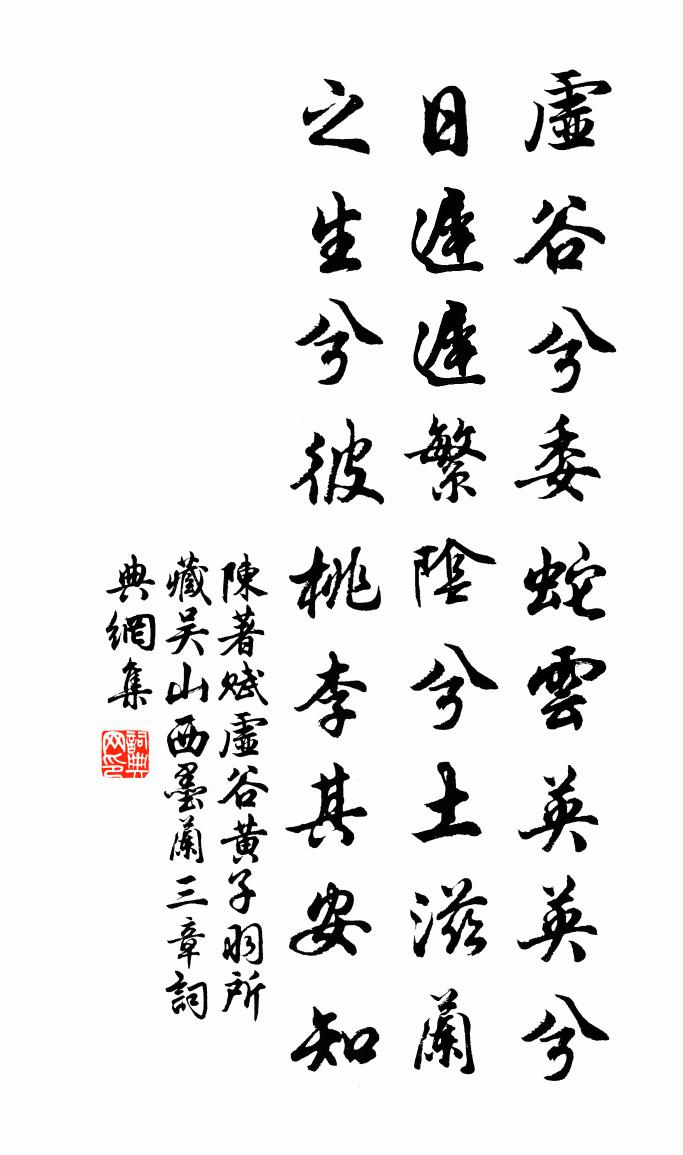 虛谷兮委蛇雲英英兮
日遲遲繁陰兮土滋蘭
之生兮彼桃李其安知
陳著賦虛谷黃子羽所
藏吴山西墨蘭三章詞
典網集
詞典
网印